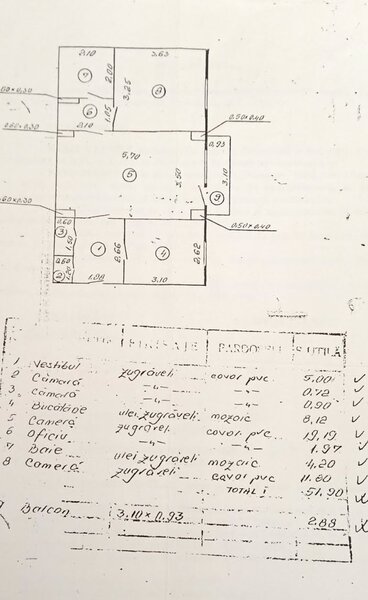 2.10
3.63
2.00
7
3.25
8
60×0.30
6
1.05
0.60×0.30
2.10
0.50×0.40
0.93
5.70
5
3.50
3.10
9
60×0.30
0.60
3
1.50
1
2.66
4
2.62
0.50×0.40
0.60
1.20
2
1.88
3.10
FINISAJE
PARDOSELI
S UTILĂ
1 Vestibul zugrăveli covor pvc 5.00 ✓
2 Cămară -"- -"- 0.72 ✓
3 Cămară -"- -"- 0.90 ✓
4 Bucătărie ulei zugrăveli mozaic 8.12 ✓
5 Cameră zugrăveli covor pvc 19.19 ✓
6 Oficiu -"- -"- 1.97 ✓
7 Baie ulei zugrăveli mozaic 4.20 ✓
8 Cameră zugrăveli covor pvc 11.80 ✓
TOTAL 51.90
Balcon 3.10×0.93 2.88